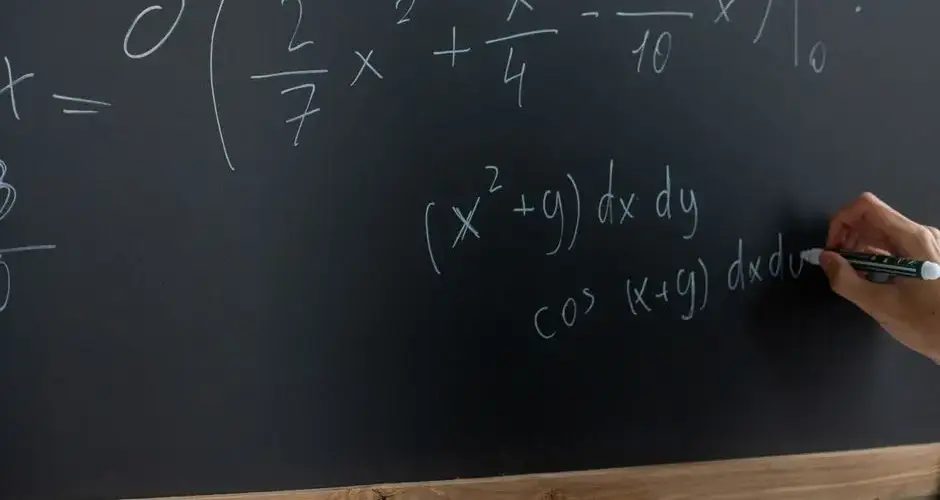 x = ( 2/7 x² + /4 - /10 x ) |₀
(x²+y) dx dy
cos (x+y) dx d